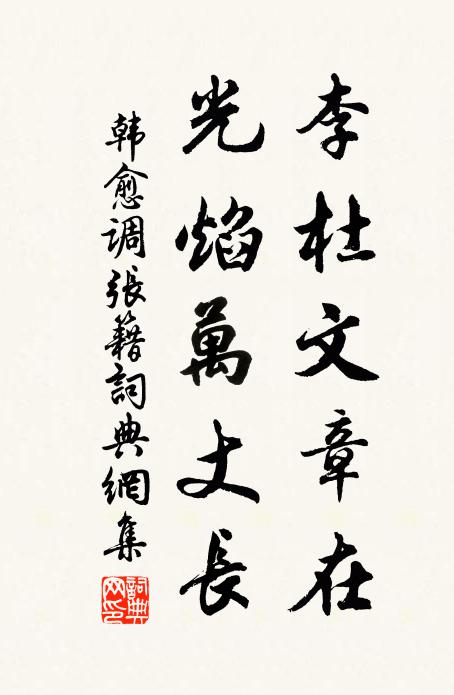 李杜文章在
光焰萬丈長
韩愈调張籍詞典網集
詞典網印